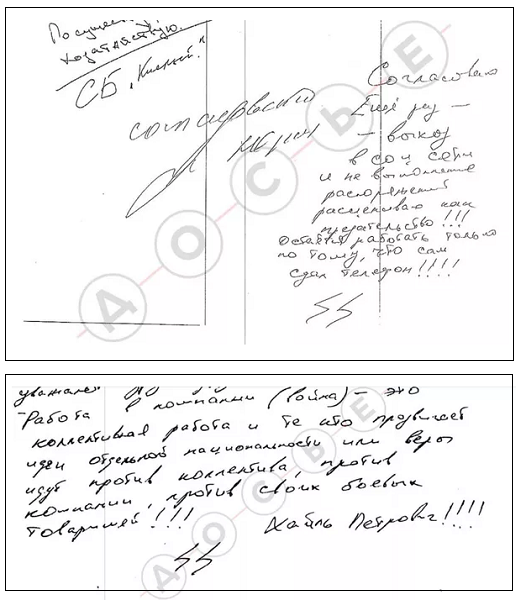 ходатайствую.
СБ „Кислый."
согласовать
Согласовано
Ещё раз —
— выход
в соц сети
и не выполнение
распоряжений
расцениваю как
предательство!!!
остаётся работать только
по тому, что сам
сдал телефон!!!!
ДОСЬЕ
в компании (война) — это
- Работа
коллективная работа и те кто продвигает
идеи отдельной национальности или веры
идут против коллектива, против
компании, против своих боевых
товарищей!!!!
Хайль Петрович!!!!
ДОСЬЕ